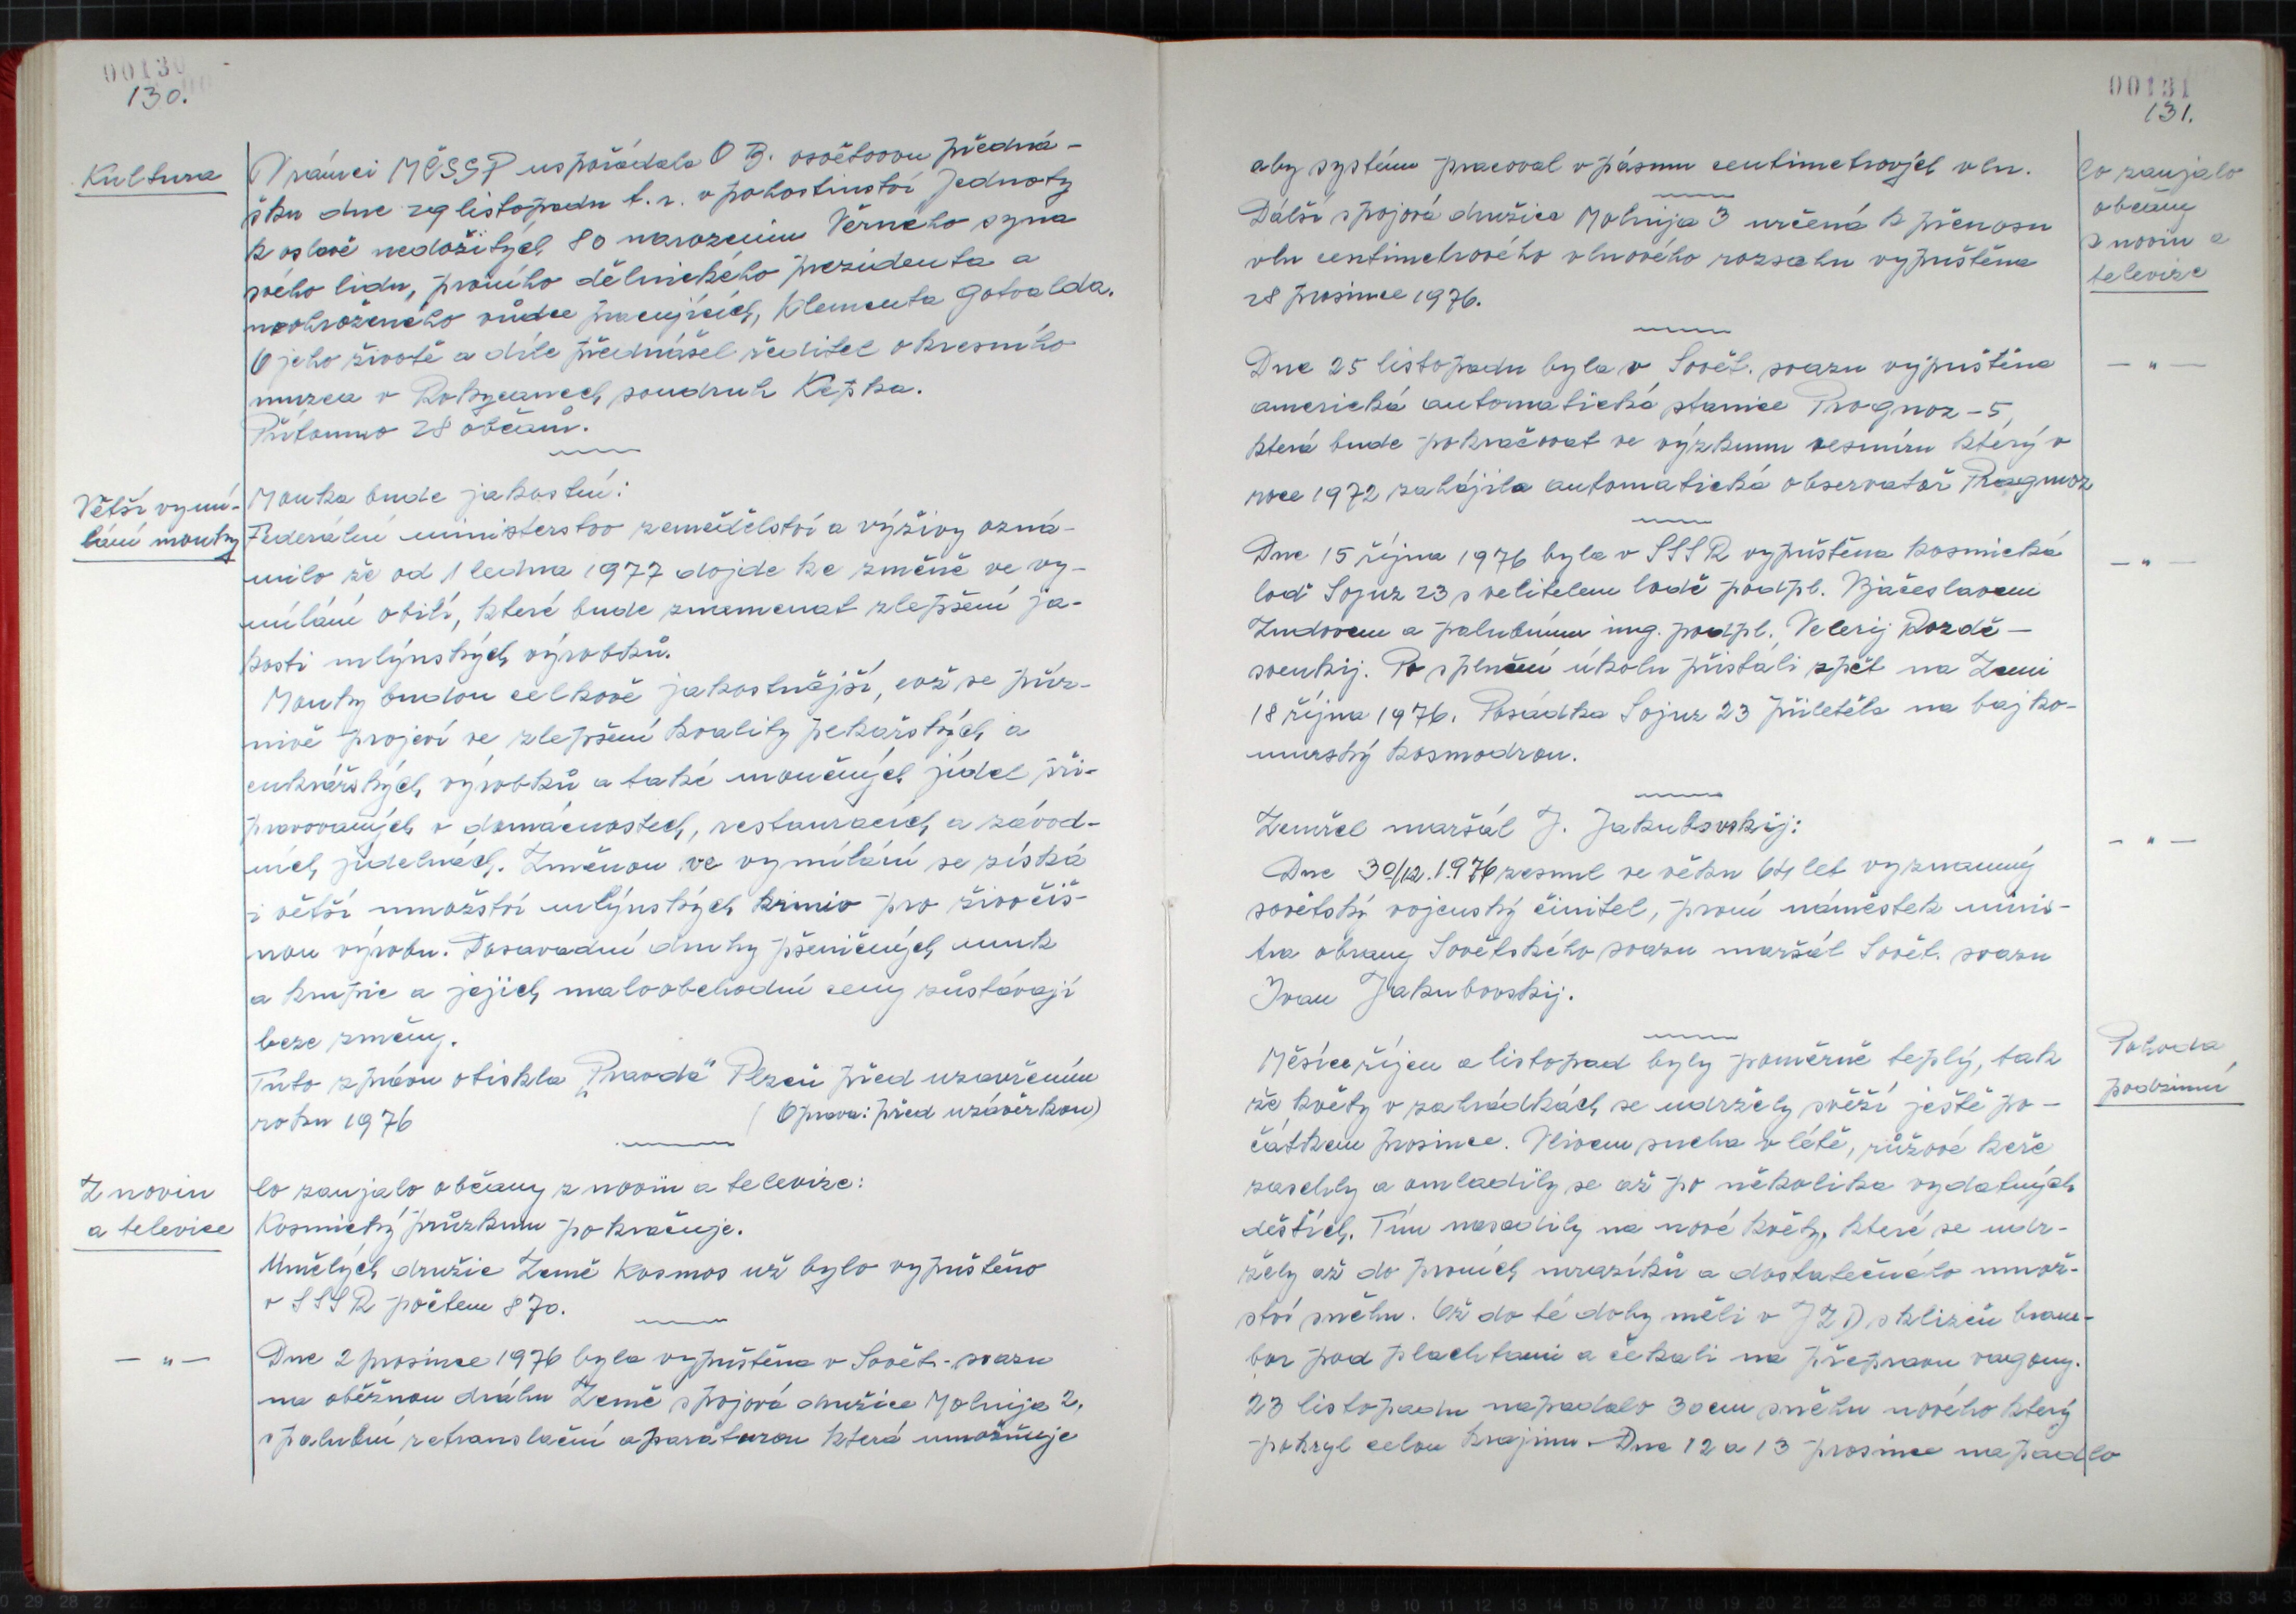 00130
130.
Kultura
V rámci MČSSP uspořádala O B. osvětovou předná-
šku dne 29 listopadu t. r. v pohostinství Jednoty
k oslavě nedožitých 80 narozenin Věrného syna
svého lidu, prvního dělnického prezidenta a
neohroženého vůdce pracujících, Klementa Gotvalda.
O jeho životě a díle přednášel ředitel okresního
muzea v Rokycanech, soudruh Kepka.
Přítomno 28 občanů.
Větší vymí-
lání mouky
Mouka bude jakostní:
Federální ministerstvo zemědělství a výživy ozná-
milo že od 1 ledna 1977 dojde ke změně ve vy-
mílání obilí, které bude znamenat zlepšení ja-
kosti mlýnských výrobků.
Mouky budou celkově jakostnější, což se příz-
nivě projeví ve zlepšení kvality pekařských a
cukrářských výrobků a také moučných jídel při-
pravovaných v domácnostech, restauracích a závod-
ních jídelnách. Změnou ve vymílání se získá
i větší množství mlýnských krmiv pro živočiš-
nou výrobu. Dosavadní druhy pšeničných muk
a krupic a jejich maloobchodní ceny zůstávají
beze změny.
Tuto zprávu otiskla „Pravda" Plzeň před uzavřením
roku 1976 (Oprava: před uzávěrkou)
Z novin
a televize
Co zaujalo občany z novin a televize:
Kosmický průzkum pokračuje.
Umělých družic Země Kosmos už bylo vypuštěno
v SSSR počtem 870.
— " —
Dne 2 prosince 1976 byla vypuštěna v Sovět. svazu
na oběžnou dráhu Země spojová družice Molnija 2,
s palubní retranslační aparaturou která umožňuje
00131
131.
aby systém pracoval v pásmu centimetrových vln.
Co zaujalo
občany
z novin a
televize
Dálší spojová družice Molnija 3 určená k přenosu
vln centimetrového vlnového rozsahu vypuštěna
28 prosince 1976.
— " —
Dne 25 listopadu byla v Sovět. svazu vypuštěna
americká automatická stanice Prognoz-5,
která bude pokračovat ve výzkumu vesmíru který v
roce 1972 zahájila automatická observatoř Prognoz
— " —
Dne 15 října 1976 byla v SSSR vypuštěna kosmická
loď Sojuz 23 s velitelem lodě podpl. Vjačeslavem
Zudovem a palubním ing. podpl. Velerij Rozdě-
svenkij. Po splnění úkolu přistáli zpět na Zemi
18 října 1976. Posádka Sojuz 23 přiletěla na bajko-
nurský kosmodron.
— " —
Zemřel maršál J. Jakubovskij:
Dne 30/12.1976 zesnul ve věku 64 let významný
sovětský vojenský činitel, první náměstek minis-
tra obrany Sovětského svazu maršál Sovět. svazu
Ivan Jakubovskij.
Pohoda
podzimní
Měsíce říjen a listopad byly poměrně teplý, tak
že květy v zahrádkách se udržely svěží ještě po-
čátkem prosince. Vlivem sucha v létě, růžové keře
zaschly a omladily se až po několika vydatných
deštích. Tím nasadily na nové květy, které se udr-
žely až do prvních mrazíků a dostatečného množ-
ství sněhu. Až do té doby měli v JZD sklizeň bram-
bor pod plachtami a čekali na přepravu vagony.
23 listopadu napadalo 30 cm sněhu nového který
pokryl celou krajinu. Dne 12 a 13 prosince napadlo